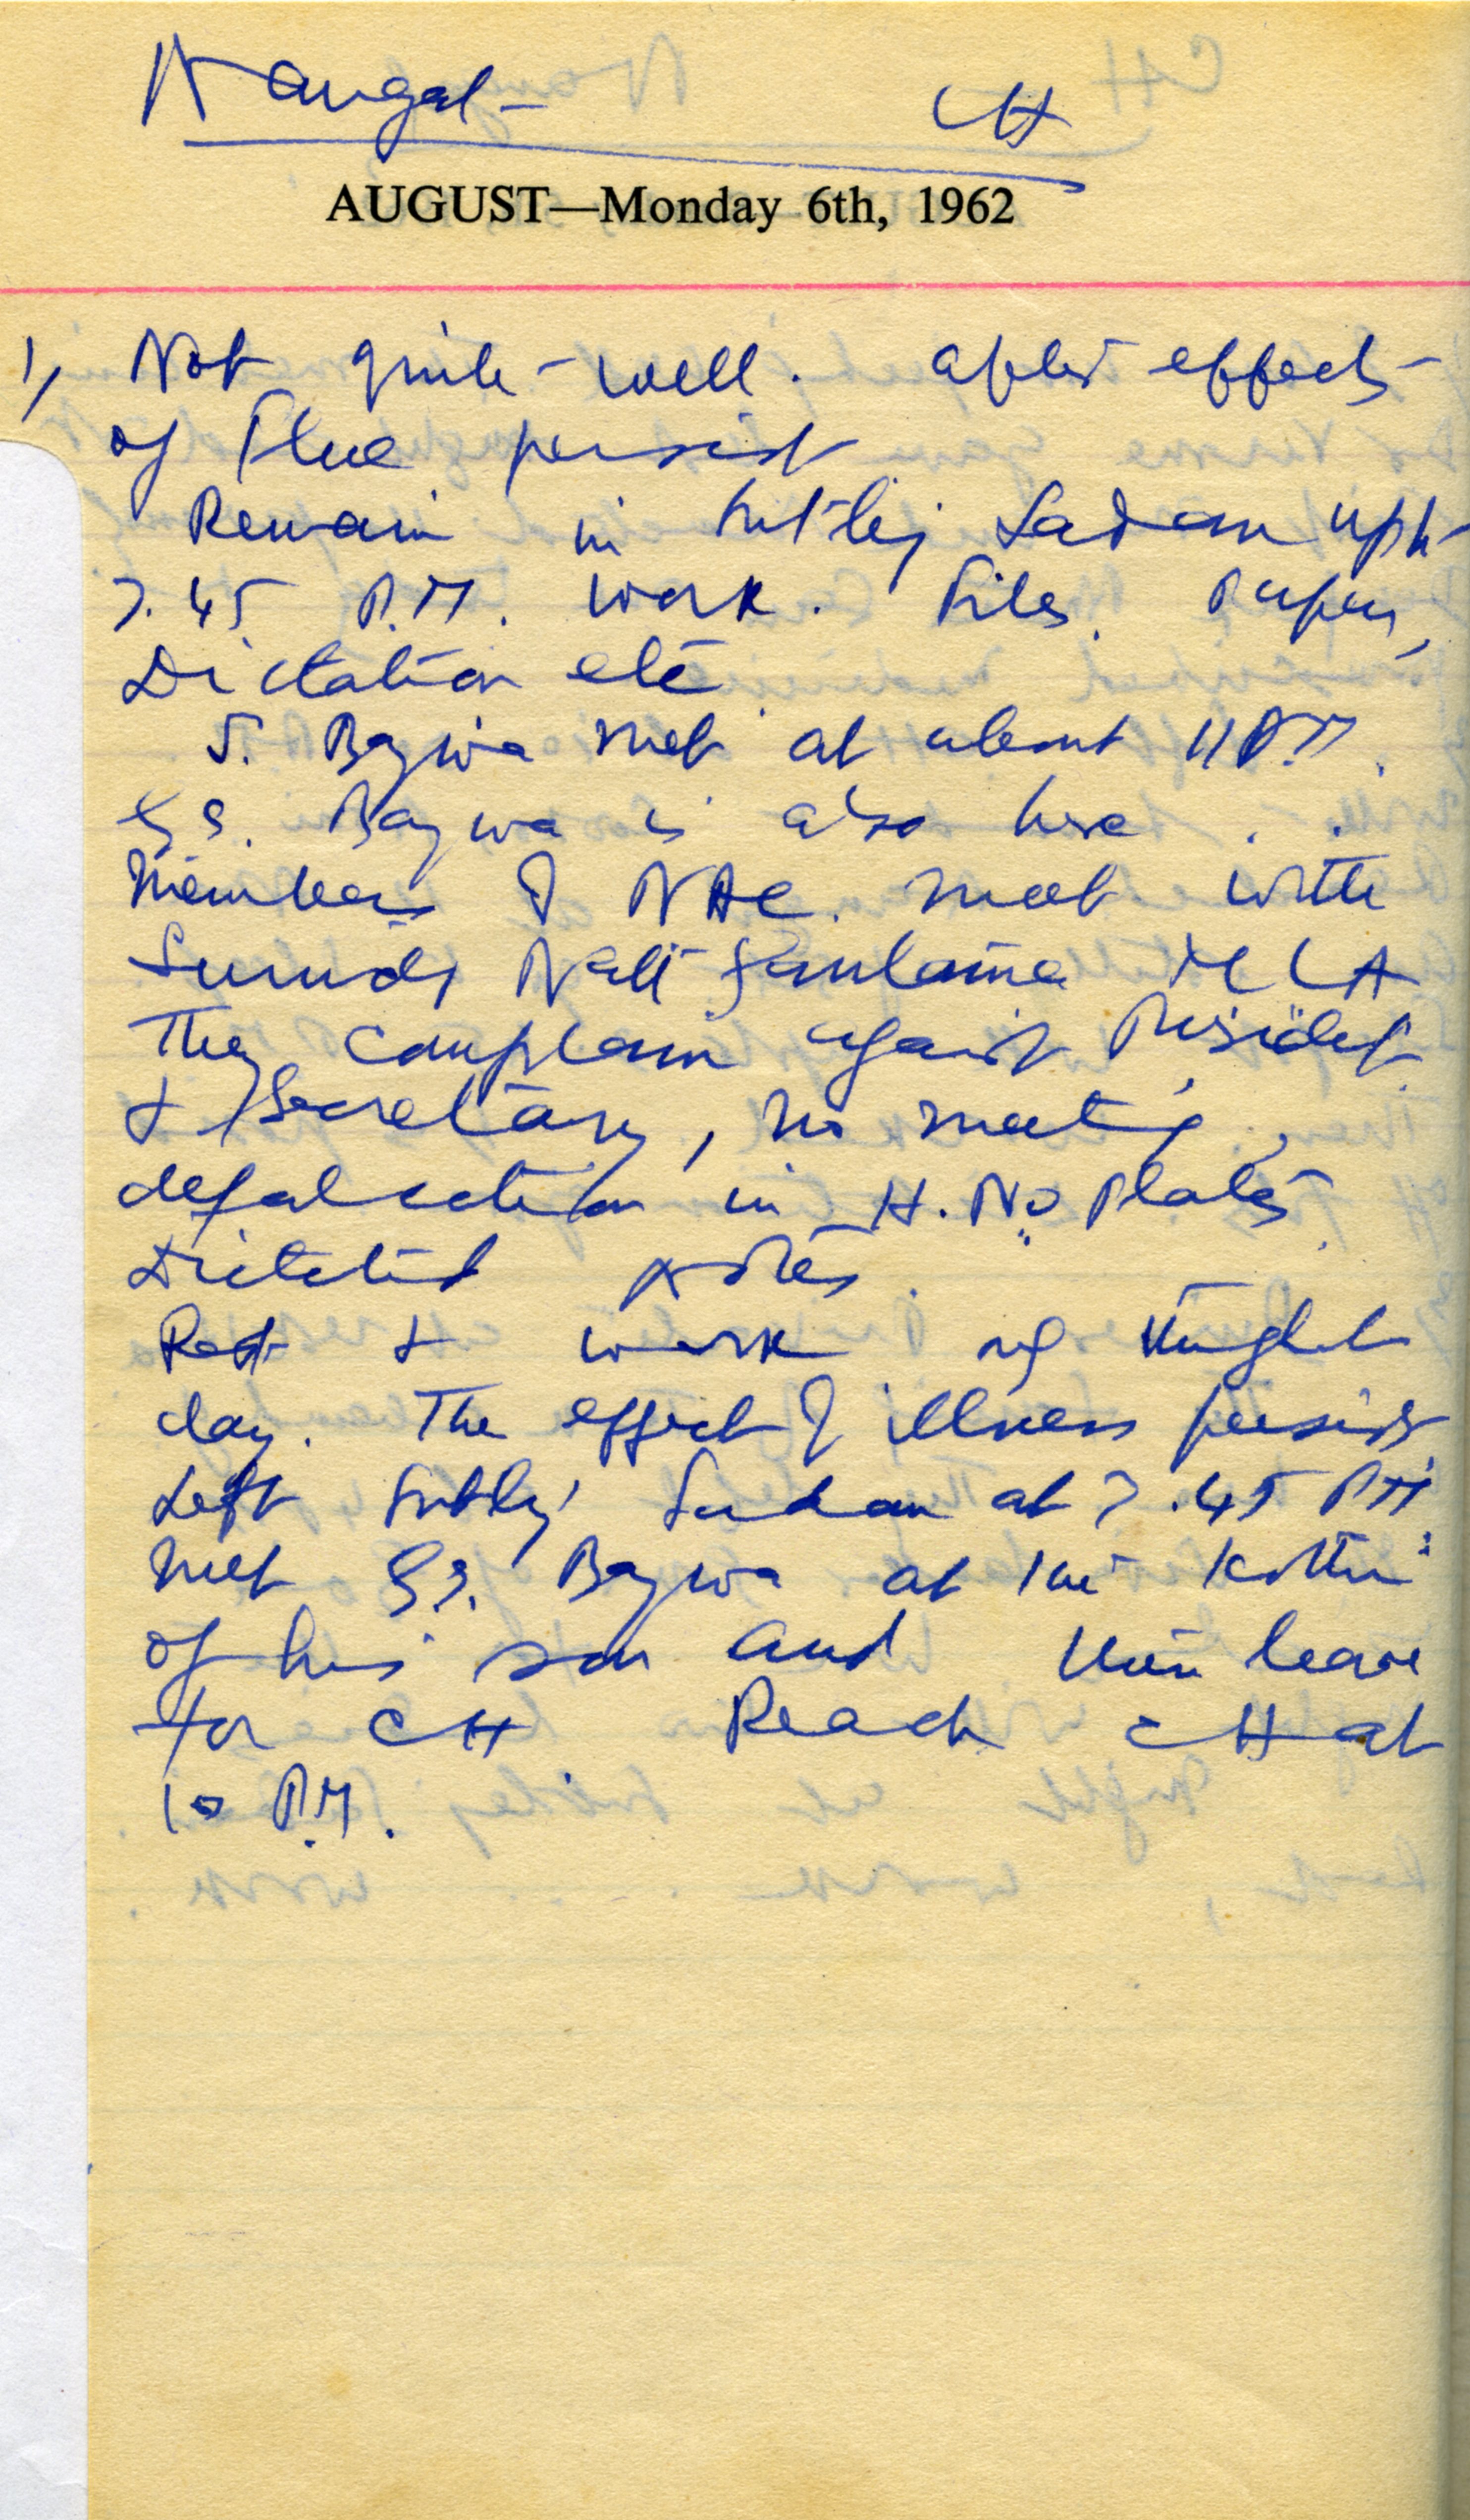 Nangal - CH
AUGUST—Monday 6th, 1962
1, Not quite well. after effects
of Flue persist
Remain in Sutlej Sadan upto
7.45 P.M. work. Files, Papers,
Dictation etc.
S. Bajwa met at about 11 P.M.
G.S. Bajwa is also here . .
Members of NAC. meet with
Nath MLA
They complain against President
& Secretary, no meeting,
defalcation in H. No Plates.
Dictated notes.
Rest & work
day. The effect of illness persists.
Left Sutlej Sadan at 7.45 PM
Met G.S. Bajwa at the Kothi
of his son and then leave
for CH Reach CH at
10 P.M.